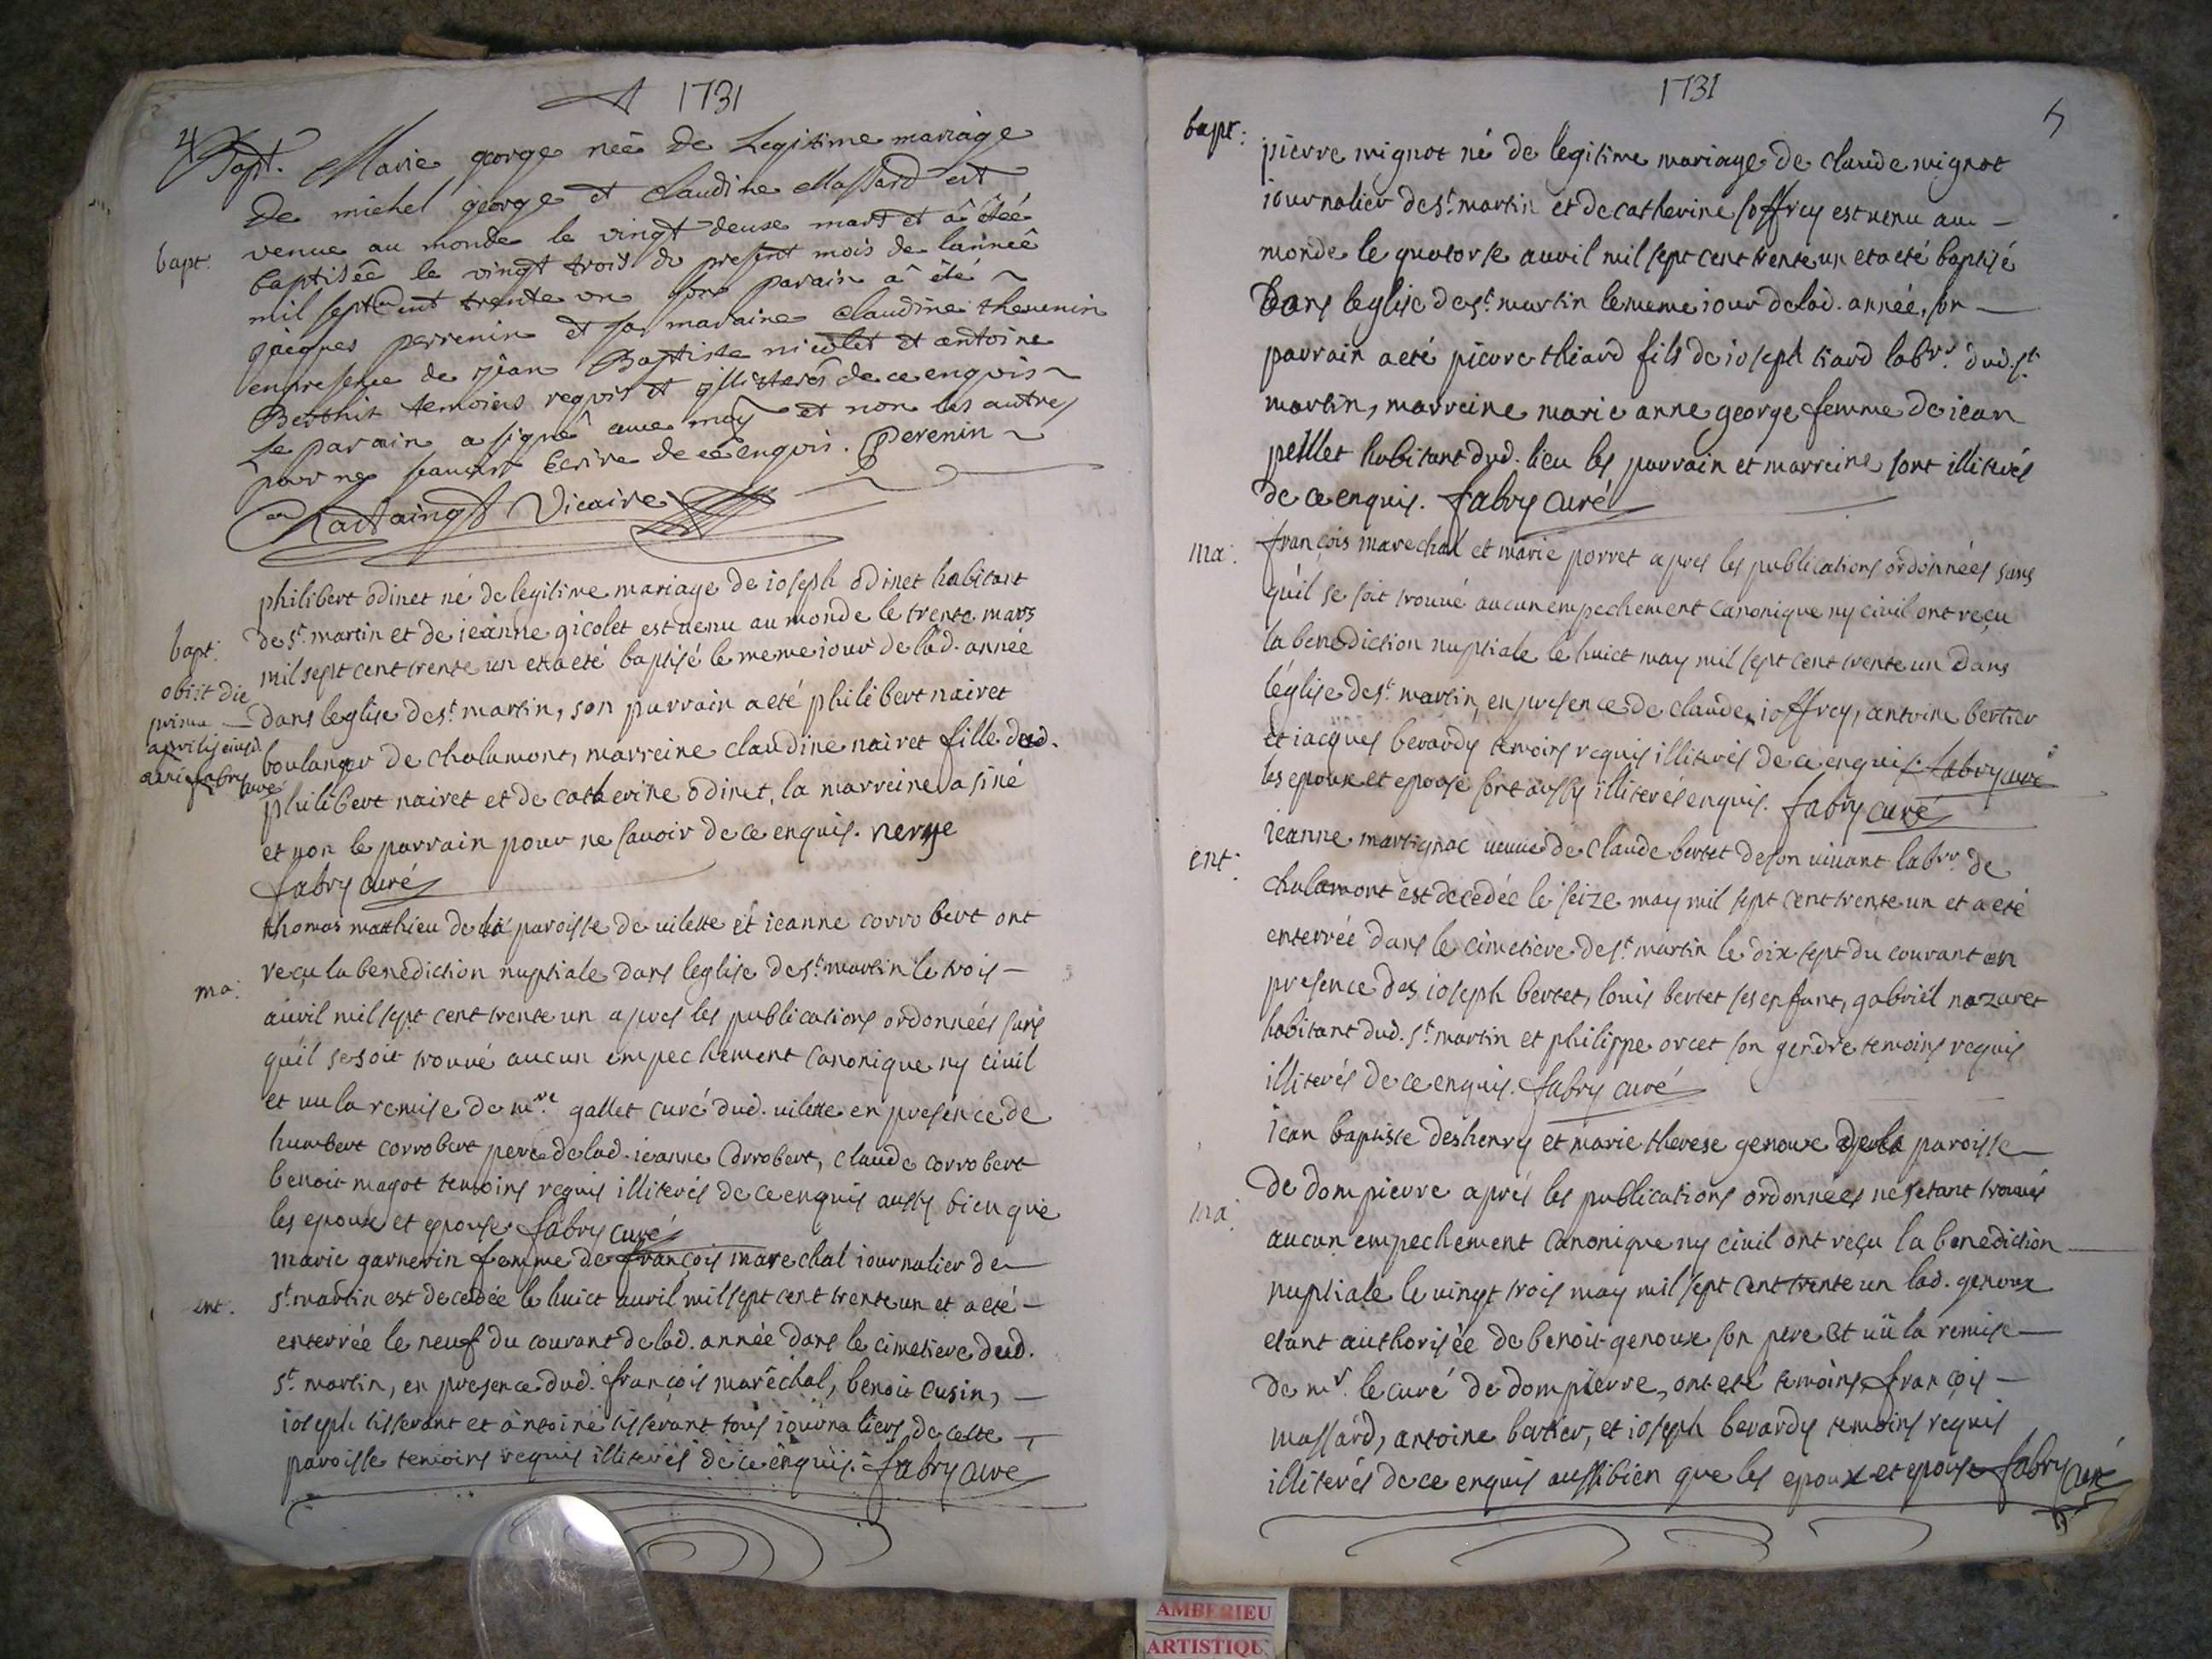 1731
4
Bapt. Marie george neé de Legitime mariage
de michel george et claudine Massard est
venue au monde le vingt deuse mars et à étéé
bapt.
baptiseê le vingt trois du present mois de l'anneê
mil sept Cent trente un son parain â êté
jacques perrenin et sa maraine claudine thevenin
en presence de jean Baptiste nicolet et antoine
Berthit temoins requis et illiterés de ce enquis
Le parain a signé avec moy et non les autres
pour ne scauoir Ecrire de ce enquis. Perenin
Vicaire
philibert odinet né de legitime mariage de ioseph odinet habitant
de st. martin et de ieanne gicolet est uenu au monde le trente mars
bapt.
mil sept cent trente un et a eté baptisé le meme iour de lad. année
obiit die
prima
aprilis eiusd.
fabry
curé
dans leglise de st. martin, son parrain a eté philibert nairet
boulanger de chalamont, marreine claudine nairet fille dud.
philibert nairet et de catherine odinet, la marreine a siné
et non le parrain pour ne sauoir de ce enquis.
fabry curé
thomas matthieu de la paroisse de uilette et ieanne corrobert ont
ma.
reçu la benediction nuptiale dans leglise de st. martin le trois
auril mil sept cent trente un apres les publications ordonnées sans
qu'il se soit trouué aucun empechement canonique ny ciuil
et uu la remise de mre. gallet curé dud. uilette en presence de
humbert corrobert pere de lad. ieanne Corrobert, claude corrobert
benoit magot temoins requis illiterés de ce enquis aussy bien que
les epoux et epouse fabry curé
marie garnerin femme de françois marechal iournalier de
ent.
st. martin est decedée le huict auril mil sept cent trente un et a eté
enterrée le neuf du courant de lad. année dans le cimetiere dud.
st. martin, en presence dud. françois maréchal, benoit cusin,
ioseph tisserant et antoine tisserant tous iournaliers de cette
paroisse temoins requis illiterés de ce enquis. fabry curé
1731
5
bapt:
pierre mignot né de legitime mariage de claude mignot
iournalier de st. martin et de catherine ioffrey est uenu au
monde le quatorse auril mil sept cent trente un et a eté baptisé
Dans leglise de st. martin le meme iour de lad. année, son
parrain a eté pierre thiard fils de ioseph tiard labr. dud. st.
martin, marreine marie anne george femme de iean
pelllet habitant dud. lieu les parrain et marreine sont illiterés
de ce enquis. fabry curé
ma:
françois marechal et marie porret apres les publications ordonnées sans
qu'il se soit trouué aucun empechement canonique ny ciuil ont reçu
la benediction nuptiale le huict may mil sept cent trente un Dans
l'église de st. martin, en presence de claude ioffrey, antoine bertier
et iacques berardy temoins requis illiterés de ce enquis. fabry curé
les epoux et epouse sont aussy illiterés enquis. fabry curé
ent:
ieanne martignac ueuue de claude bertet de son uiuant labr. de
chalamont est decedée le seize may mil sept cent trente un et a eté
enterrée dans le cimetiere de st. martin le dix sept du courant en
presence des ioseph bertet, louis bertet ses enfant, gabriel nazaret
habitant dud. st. martin et philippe orcet son gendre temoins requis
illiterés de ce enquis. fabry curé
iean baptiste deshenry et marie therese genoux de la paroisse
ma.
de dompierre aprés les publications ordonnées ne setant trouués
aucun empechement canonique ny ciuil ont reçu la benediction
nuptiale le uingt trois may mil sept cent trente un lad. genoux
etant authorisée de benoit genoux son pere et uü la remise
de mr. le curé de dompierre, ont eté temoins françois
massard, antoine bertier, et ioseph berardy temoins requis
illiterés de ce enquis aussi bien que les epoux et epouse fabry curé
AMBERIEU
ARTISTIQU